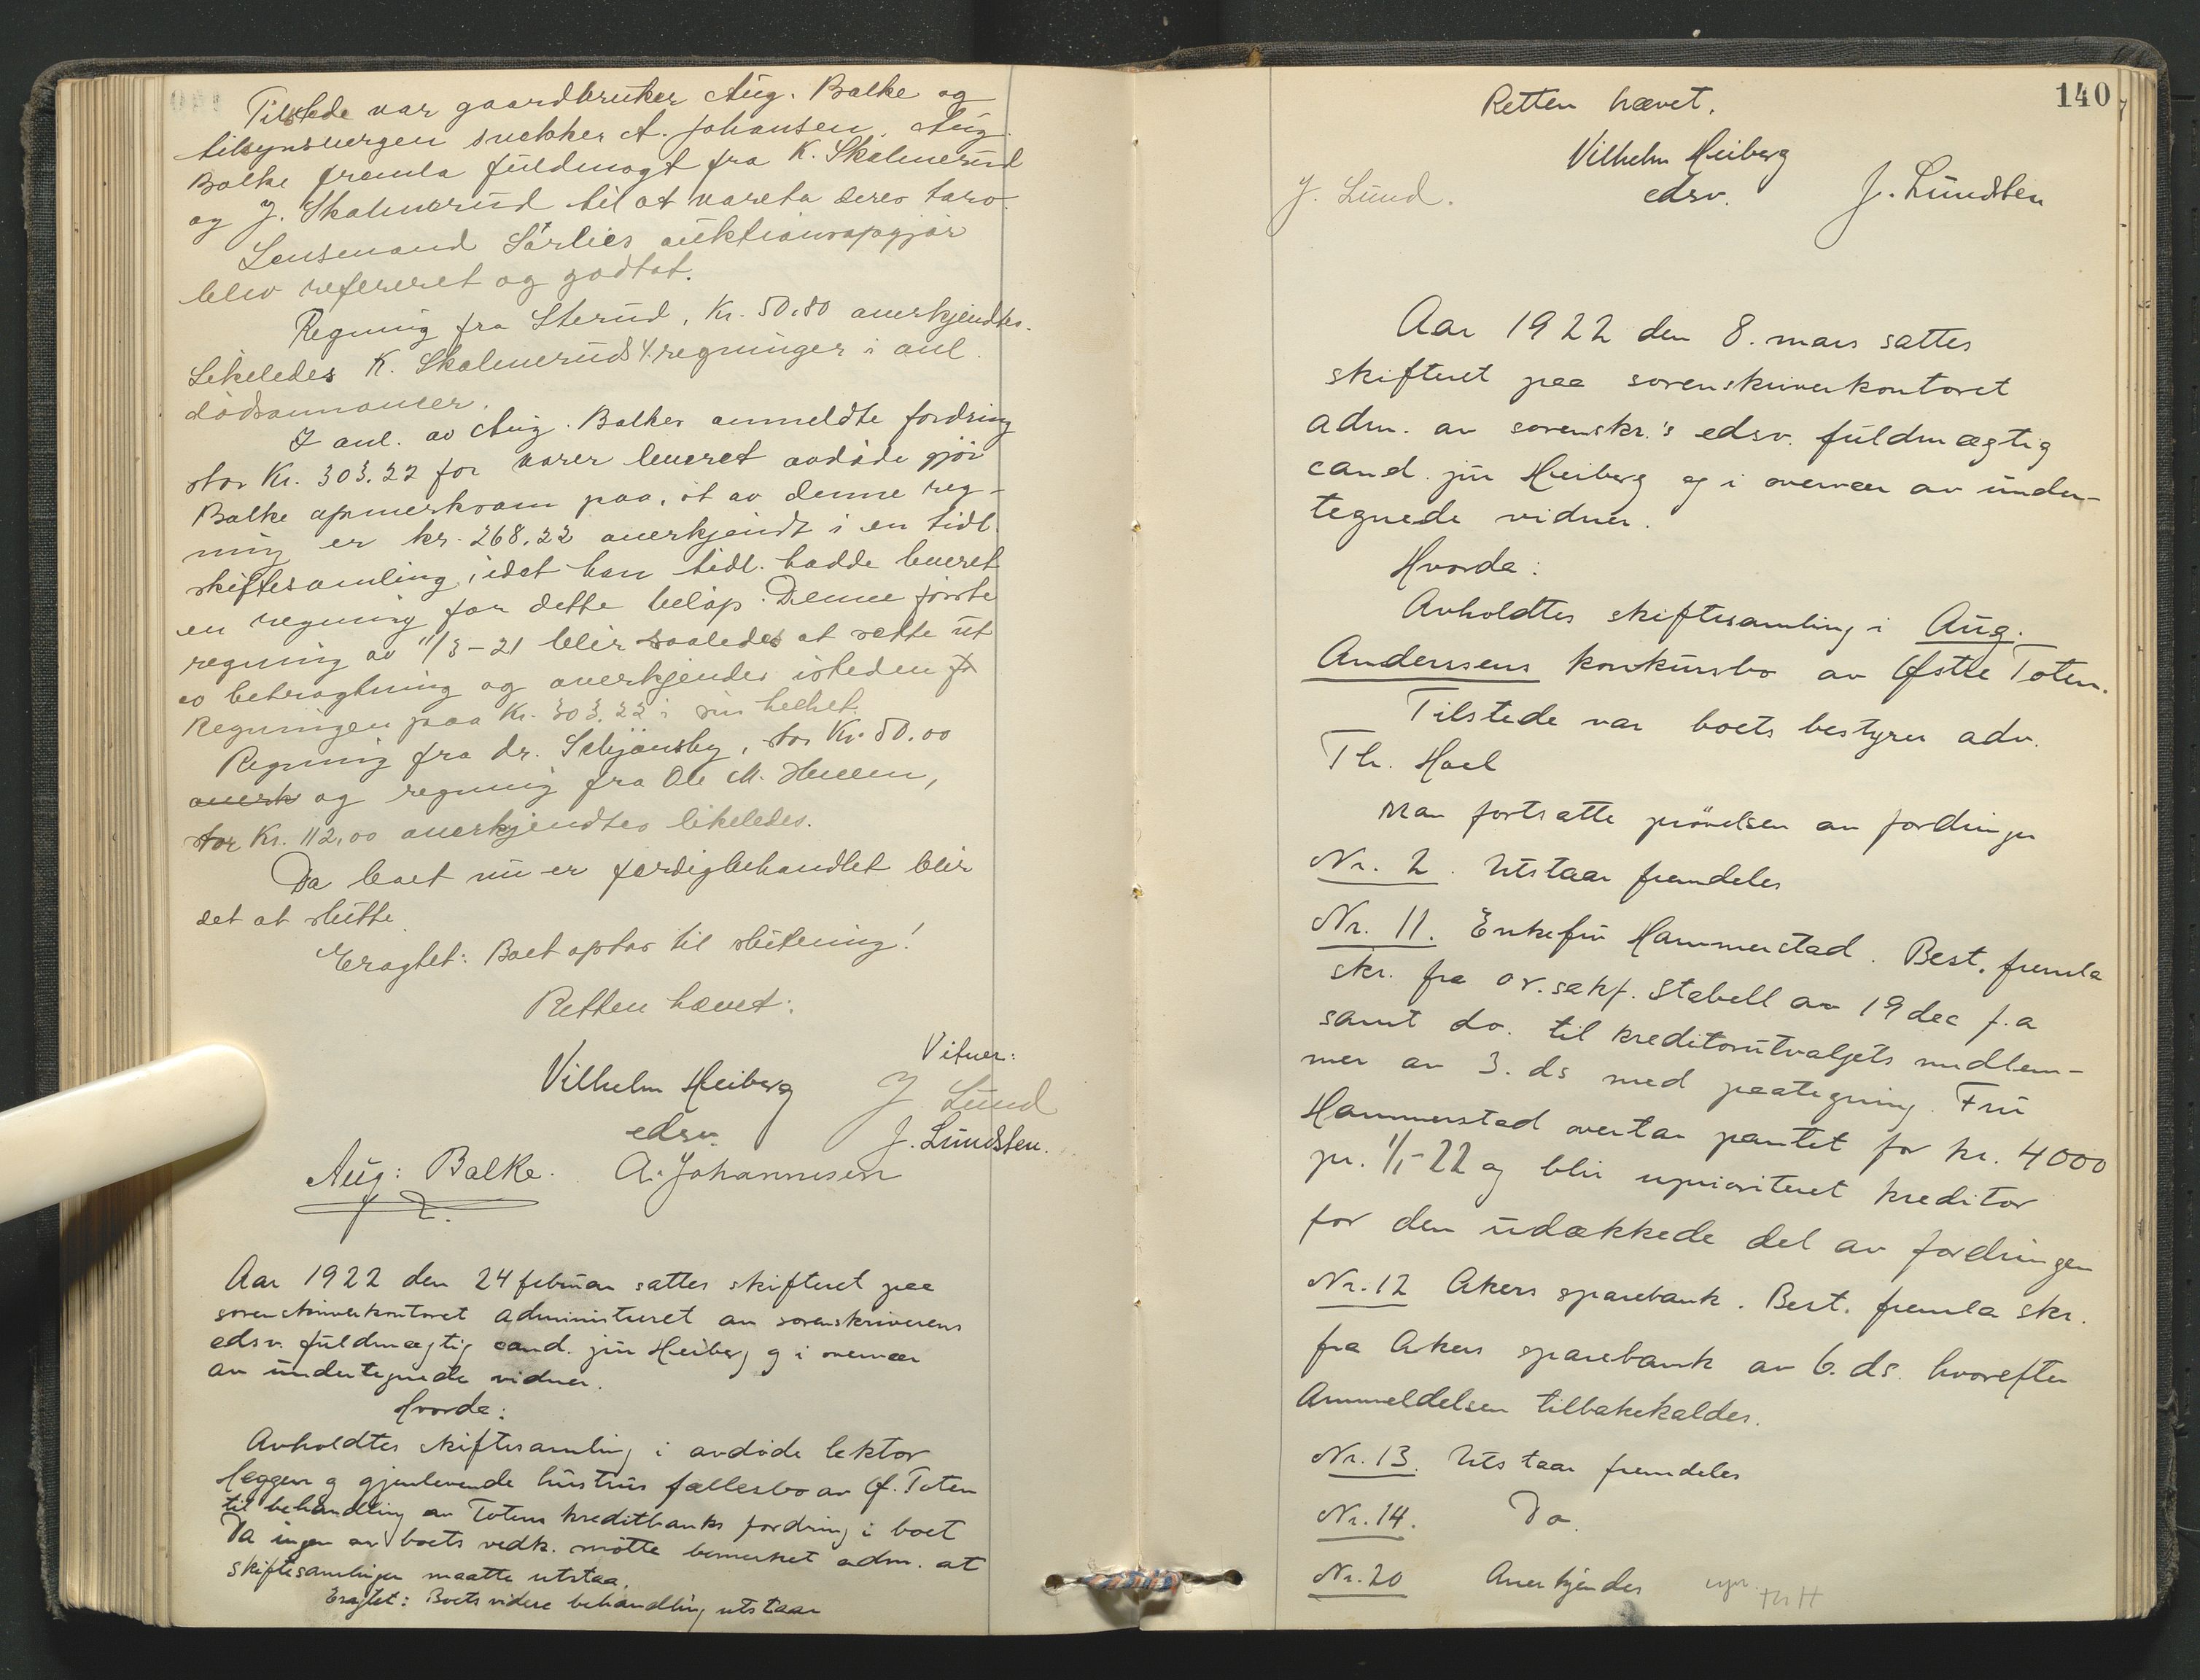 Tilstede var gaardbruker Aug. Balke og
tilsynsvergen snekker A. Johansen. Aug.
Balke fremla fuldmagt fra K. Skalmerud
og J. Skalmerud til at vareta deres tarv.
Lensmand Sørlies auktionsopgjør
blev referert og godtat.
Regning fra Sterud, Kr. 50,80 anerkjendtes.
Likeledes K. Skalmeruds 4 regninger i anl.
dødsannoncer.
I anl. av Aug. Balkes anmeldte fordring
stor Kr. 303.22 for varer leveret avdøde gjør
Balke opmerksom paa, at av denne reg-
ning er kr. 268.22 anerkjendt i en tidl.
skiftesamling, idet han tidl. hadde leveret
en regning for dette beløp. Denne første
regning av 11/3-21 blir saaledes at sette ut
av betragtning og anerkjendes isteden
Regningen paa Kr. 303.22 i sin helhet.
Regning fra dr. Schjønsby, stor Kr. 50.00
anerk og regning fra Ole M. Huuen,
stor Kr. 112,00 anerkjendtes likeledes.
Da boet nu er færdigbehandlet blir
det at slutte.
Eragtet: Boet optas til slutning!
Retten hævet:
Vitner:
Vilhelm Heiberg J Lund
edsv. J. Lundsten.
Aug: Balke. A. Johannesen
Aar 1922 den 24 februar sattes skifteret paa
sorenskriverkontoret administreret av sorenskriverens
edsv. fuldmægtig cand. jur Heiberg og i overvær
av undertegnede vidner.
Hvorda:
Avholdtes skiftesamling i avdøde lektor
Heggen og gjenlevende hustrus fællesbo av Ø. Toten
til behandling av Totens kreditbanks fordring i boet
Da ingen av boets vedk. møtte bemerket adm. at
skiftesamlingen maatte utstaa.
Eragtet: Boets videre behandling utstaar
140
Retten hævet.
Vilhelm Heiberg
J. Lund. edsv. J. Lundsten
Aar 1922 den 8. mars sattes
skifteret paa sorenskriverkontoret
adm. av sorenskr.'s edsv. fuldmægtig
cand. jur Heiberg og i overvær av under-
tegnede vidner.
Hvorda:
Avholdtes skiftesamling i Aug.
Anderssens konkursbo av Østre Toten.
Tilstede var boets bestyrer adv.
Th. Hoel
Man fortsatte prøvelsen av fordringer
Nr. 2. Utstaar fremdeles
Nr. 11. Enkefru Hammerstad. Best. fremla
skr. fra o.r.sakf. Stabell av 19 dec f.a
samt do. til kreditorutvalgets medlem-
mer av 3. ds med paategning. Fru
Hammerstad overtar pantet for kr. 4000
pr. 1/1-22 og blir uprioriteret kreditor
for den udækkede del av fordringen
Nr. 12 Akers sparebank. Best. fremla skr.
fra Akers sparebank av 6. ds. hvorefter
Anmeldelsen tilbakekaldes.
Nr. 13. Utstaar fremdeles
Nr. 14. Do.
Nr. 20 Anerkjendes upr. ThH